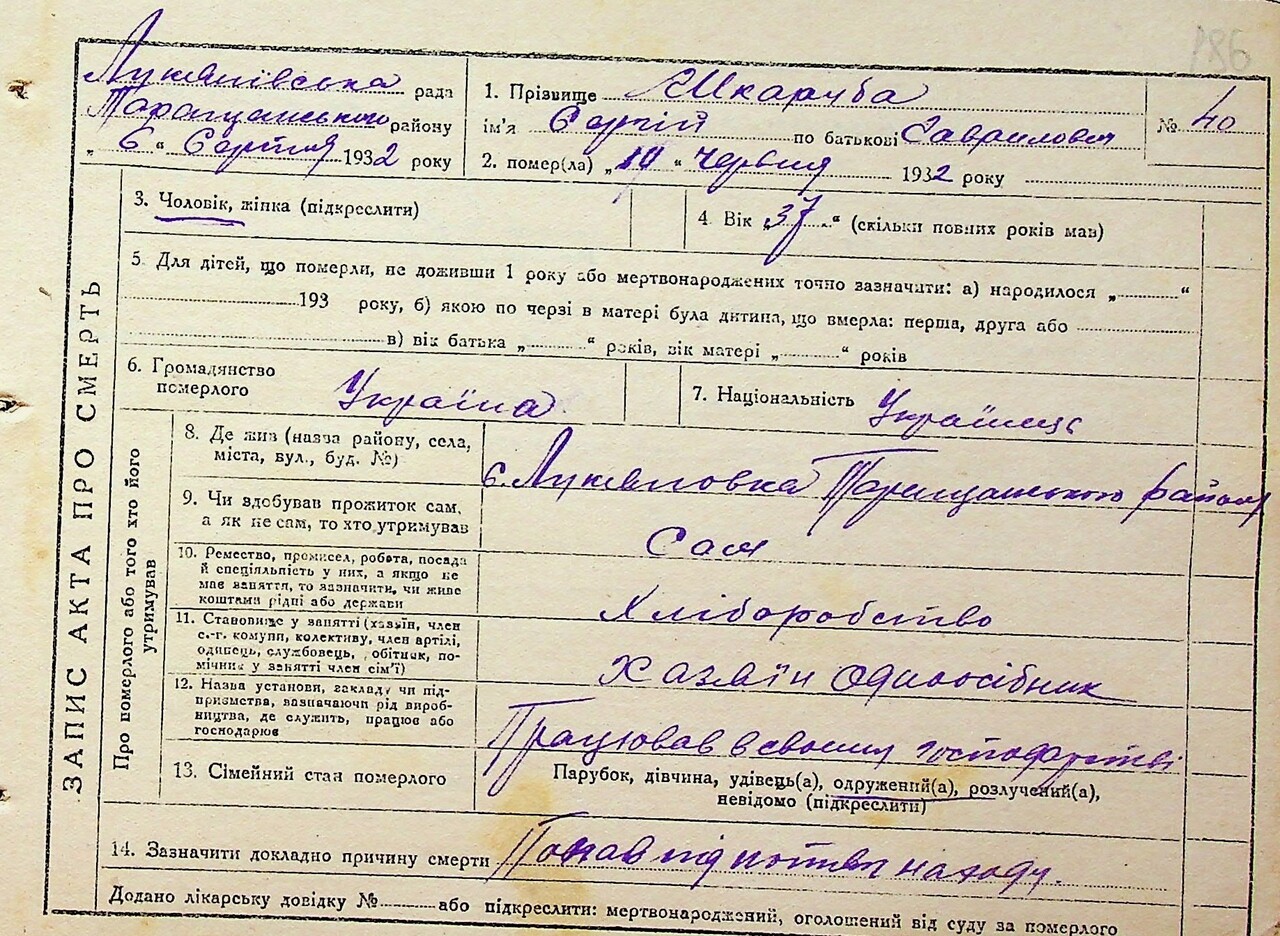 186
Лукянівська рада
Таращанського району
„ 6 “ Серпня 1932 року
1. Прізвище Шкаруба
ім'я Сергій по батькові Гаврилович
2. помер(ла) „ 14 “ Червня 1932 року
№ 40
ЗАПИС АКТА ПРО СМЕРТЬ
3. Чоловік, жінка (підкреслити)
4. Вік „ 37 “ (скільки повних років мав)
5. Для дітей, що померли, не доживши 1 року або мертвонароджених точно зазначити: а) народилося „ “
193 року, б) якою по черзі в матері була дитина, що вмерла: перша, друга або
в) вік батька „ “ років, вік матері „ “ років
6. Громадянство
померлого Україна
7. Національність Українець
Про померлого або того хто його
утримував
8. Де жив (назва району, села,
міста, вул., буд. №)
с. Лукяновка Таращанського району
9. Чи здобував прожиток сам,
а як не сам, то хто утримував
Сам
10. Ремество, промисел, робота, посада
й спеціяльність у них, а якщо не
має заняття, то зазначити, чи живе
коштами рідні або держави
Хліборобство
11. Становище у занятті (хазяїн, член
с.-г. комуни, колективу, член артілі,
одинець, службовець, обітник, по-
мічник у занятті член сім'ї)
Хазяїн одноосібник
12. Назва установи, закладу чи під-
приємства, вазначаючи рід вироб-
ництва, де служить, працює або
господарює
Працював в своєму господарстві
13. Сімейний стан померлого
Парубок, дівчина, удівець(а), одружений(а), розлучений(а),
невідомо (підкреслити)
14. Зазначити докладно причину смерти Попав під
Додано лікарську довідку № або підкреслити: мертвонароджений, оголошений від суду за померлого